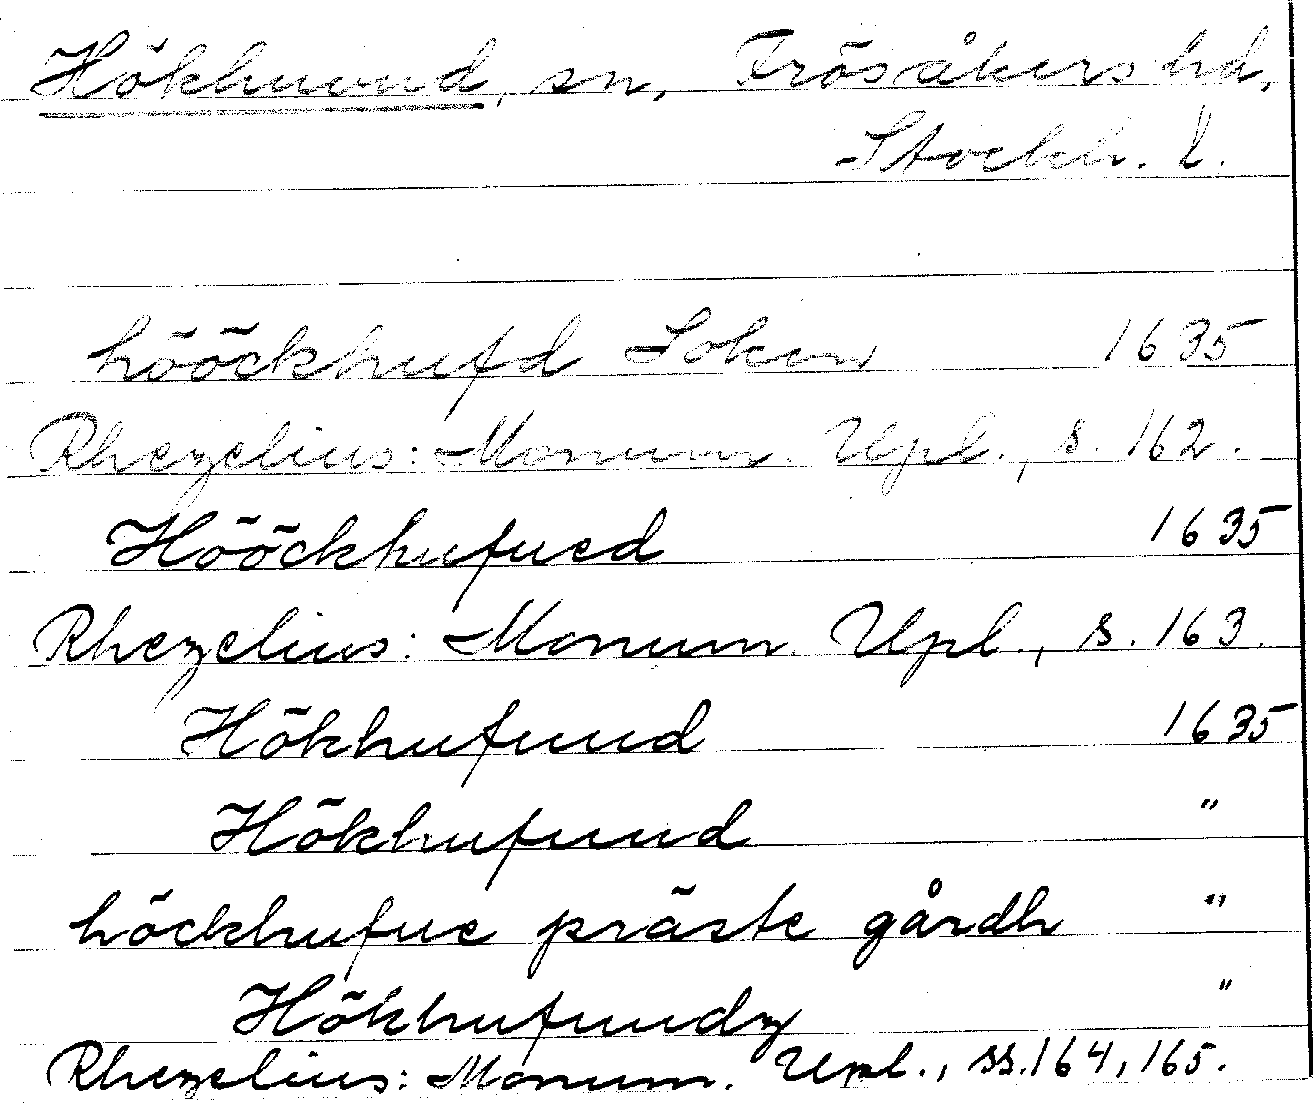 Hökhuvud, sn, Frösåkers hd,
Stockh. l.
hööckhufd Soken 1635
Rhezelius: Monum. Upl., s. 162.
Hööckhufued 1635
Rhezelius: Monum. Upl., s. 163.
Hökhufuud 1635
Hökhufuud "
höckhufue präste gårdh "
Hökhufuudz "
Rhezelius: Monum. Upl., ss. 164, 165.